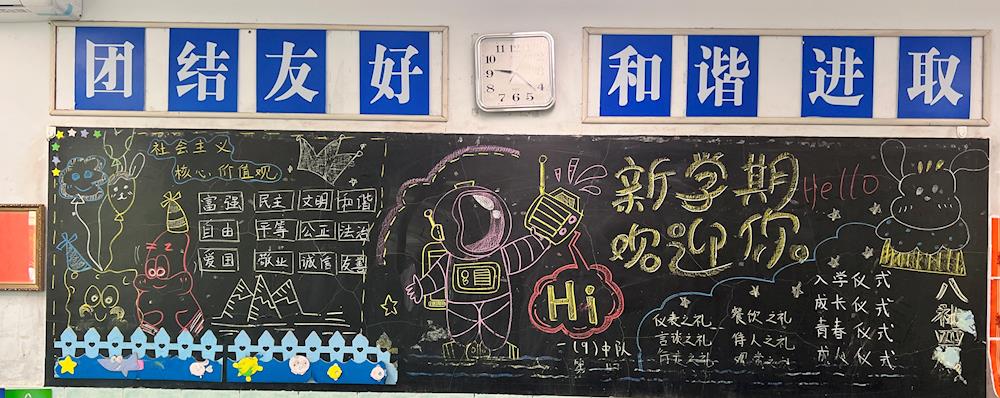 团结友好
和谐进取
社会主义
核心价值观
富强 民主 文明 和谐
自由 平等 公正 法治
爱国 敬业 诚信 友善
Hi
一(9)中队
新学期
欢迎你
Hello
仪表之礼 餐饮之礼
言谈之礼 待人之礼
行走之礼 观赏之礼
入学仪式
成长仪式
青春仪式
成人仪式
八礼四
11 12 1
10 2
9 3
8 4
7 6 5